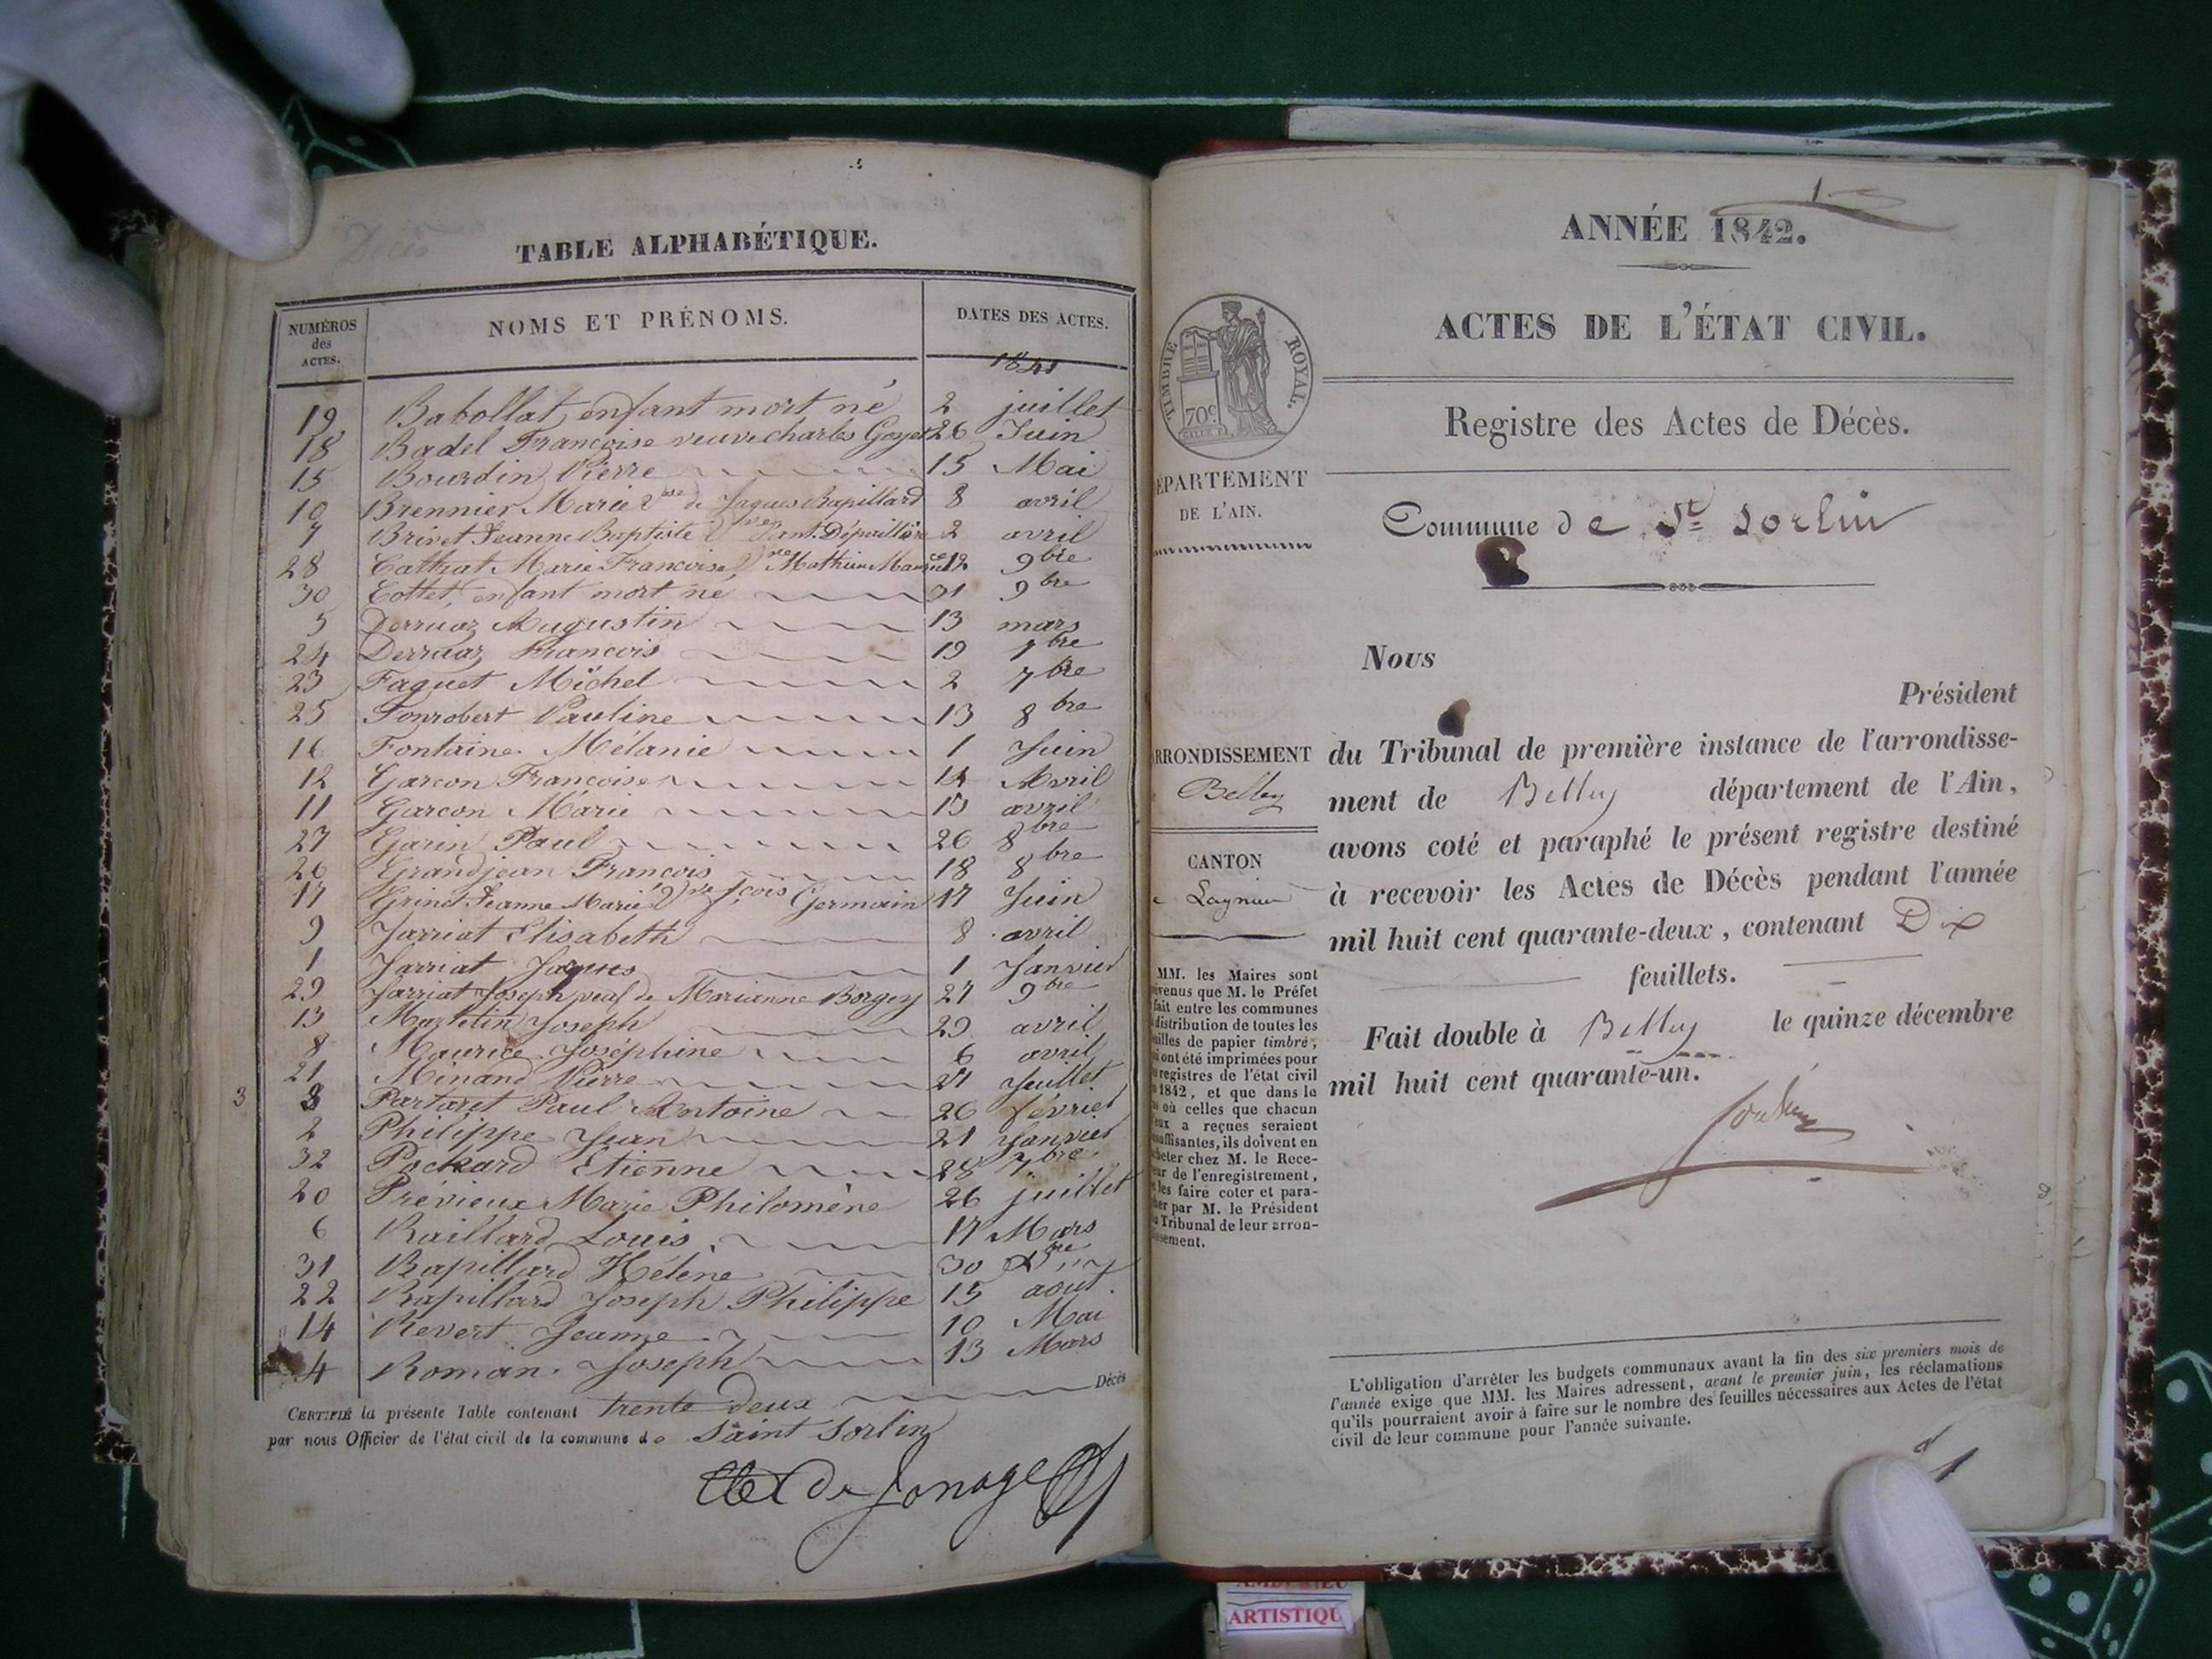 TABLE ALPHABÉTIQUE.
NUMÉROS des ACTES.
NOMS ET PRÉNOMS.
DATES DES ACTES.
1841
19 Babollat, enfant mort né 2 juillet
18 Badel Françoise veuve charles Goyet 26 Juin
15 Bourdin Pierre 15 Mai
10 Brennier Marie Vve de Jaques Rapillard 8 avril
7 Brivet Jeanne Baptiste Vve ant. 2 avril
28 Marie Francoise Vve Mathieu 12 9bre
30 Cottet, enfant mort né 9bre
5 Derruaz Augustin 13 mars
24 Derruaz Francois 19 7bre
23 Faguet Michel 2 7bre
25 Fonrobert Pauline 13 8bre
16 Fontaine Mélanie 1 Juin
12 Garcon Francoise 14 Avril
11 Garcon Marie 13 avril
27 Garin Paul 26 8bre
26 Grandjean Francois 18 8bre
17 Jeanne Marie Vve fcois Germain 17 Juin
9 Jarriat Elisabeth 8 avril
1 Jarriat Jaques 1 Janvier
29 Jarriat Joseph veuf de Marianne Borgey 27 9bre
13 Martetin Joseph 29 avril
8 Maurice Joséphine 6 avril
21 Minand Pierre Juillet
3 Partaret Paul Antoine 26 février
2 Philippe Jean 21 Janvier
32 Pockard Etienne 28
20 Prévieux Marie Philomène 26 juillet
6 Raillard Louis 17 Mars
31 Rapillard Hélène 30
22 Rapillard Joseph Philippe 15 aout
14 Revert Jeanne 10 Mai
4 Roman Joseph 13 Mars
CERTIFIÉ la présente Table contenant trente deux Décès
par nous Officier de l'état civil de la commune de Saint Sorlin
de Jonage
ANNÉE 1842.
ACTES DE L'ÉTAT CIVIL.
TIMBRE ROYAL.
70c
Registre des Actes de Décès.
ÉPARTEMENT
DE L'AIN.
Commune de St Sorlin
Nous
Président
RRONDISSEMENT
Belley
du Tribunal de première instance de l'arrondisse-
ment de Belley département de l'Ain,
avons coté et paraphé le présent registre destiné
à recevoir les Actes de Décès pendant l'année
mil huit cent quarante-deux, contenant Dix
feuillets.
CANTON
Lagnieu
Fait double à Belley le quinze décembre
mil huit cent quarante-un.
MM. les Maires sont
évenus que M. le Préfet
fait entre les communes
distribution de toutes les
uilles de papier timbré,
i ont été imprimées pour
registres de l'état civil
1842, et que dans le
où celles que chacun
eux a reçues seraient
suffisantes, ils doivent en
heter chez M. le Rece-
ur de l'enregistrement,
les faire coter et para-
her par M. le Président
Tribunal de leur arron-
issement.
L'obligation d'arrêter les budgets communaux avant la fin des six premiers mois de
l'année exige que MM. les Maires adressent, avant le premier juin, les réclamations
qu'ils pourraient avoir à faire sur le nombre des feuilles nécessaires aux Actes de l'état
civil de leur commune pour l'année suivante.
ARTISTIQU